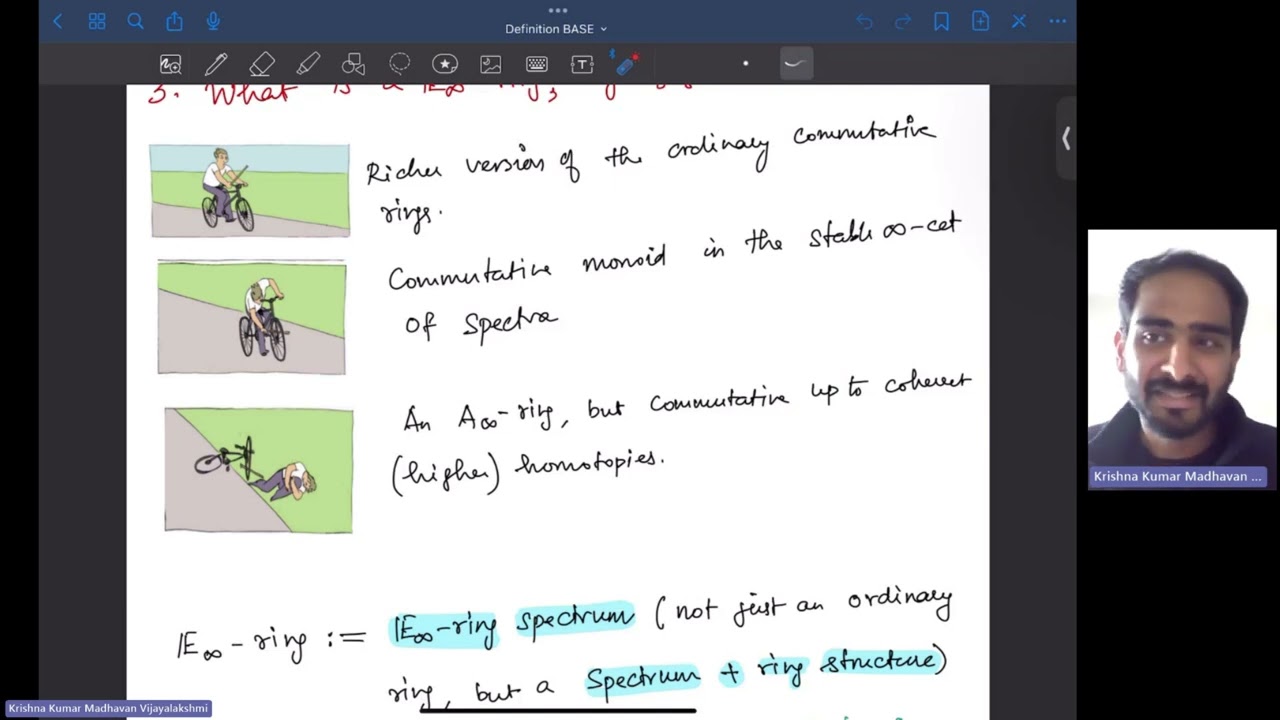 Definition BASE
3. What is a
Richer version of the ordinary commutative
rings.
Commutative monoid in the stable ∞-cat
of spectra
An A∞-ring, but commutative up to coherent
(higher) homotopies.
E∞-ring := E∞-ring spectrum (not just an ordinary
ring, but a spectrum + ring structure)
Krishna Kumar Madhavan ...
Krishna Kumar Madhavan Vijayalakshmi